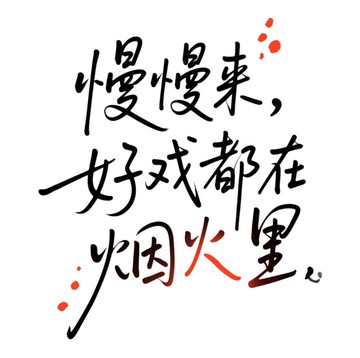 慢慢来，
好戏都在
烟火里。